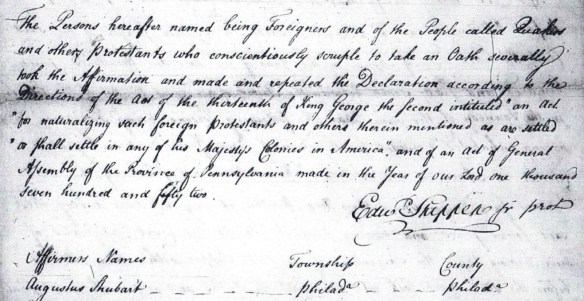 The Persons hereafter named being Foreigners and of the People called Quakers
and others Protestants who conscientiously scruple to take an Oath severally
took the Affirmation and made and repeated the Declaration according to the
Directions of the Act of the thirteenth of King George the Second intituled "an Act
"for naturalizing such foreign Protestants and others therein mentioned as are settled
"or shall settle in any of his Majestys Colonies in America", and of an Act of General
Assembly of the Province of Pennsylvania made in the Year of our Lord one thousand
seven hundred and fifty two.
Edwd. Shippen jr prot
Affirmers Names Township County
Augustus Shubart Philada Philada